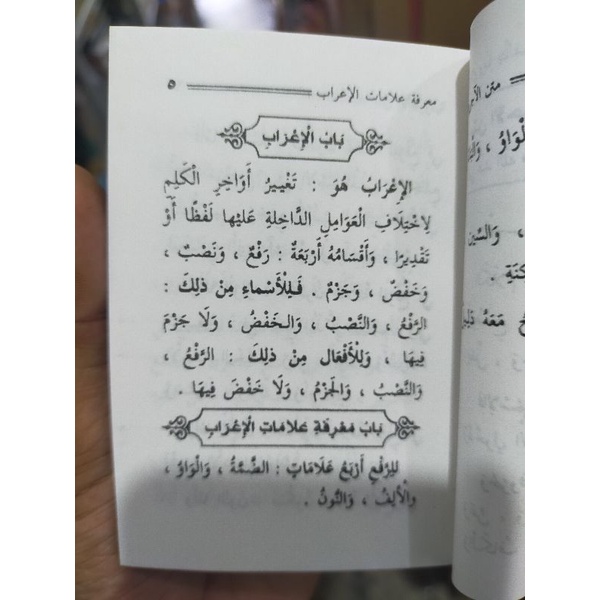 معرفة علامات الإعراب ٥
بَابُ الْإِعْرَابِ
الإِعْرَابُ هُوَ : تَغْيِيرُ أَوَاخِرِ الْكَلِمِ
لِاخْتِلَافِ الْعَوَامِلِ الدَّاخِلَةِ عَلَيْهَا لَفْظًا أَوْ
تَقْدِيرًا ، وَأَقْسَامُهُ أَرْبَعَةٌ : رَفْعٌ ، وَنَصْبٌ ،
وَخَفْضٌ ، وَجَزْمٌ . فَلِلْأَسْمَاءِ مِنْ ذلِكَ :
الرَّفْعُ ، وَالنَّصْبُ ، وَالْخَفْضُ ، وَلَا جَزْمَ
فِيهَا ، وَلِلْأَفْعَالِ مِنْ ذلِكَ : الرَّفْعُ ،
وَالنَّصْبُ ، وَالْجَزْمُ ، وَلَا خَفْضَ فِيهَا .
بَابُ مَعْرِفَةِ عَلَامَاتِ الْإِعْرَابِ
لِلرَّفْعِ أَرْبَعُ عَلَامَاتٍ : الضَّمَّةُ ، وَالْوَاوُ ،
وَالْأَلِفُ ، وَالنُّونُ .
متن
الْوَاوُ ،
، وَالسِّين
مَعَهُ